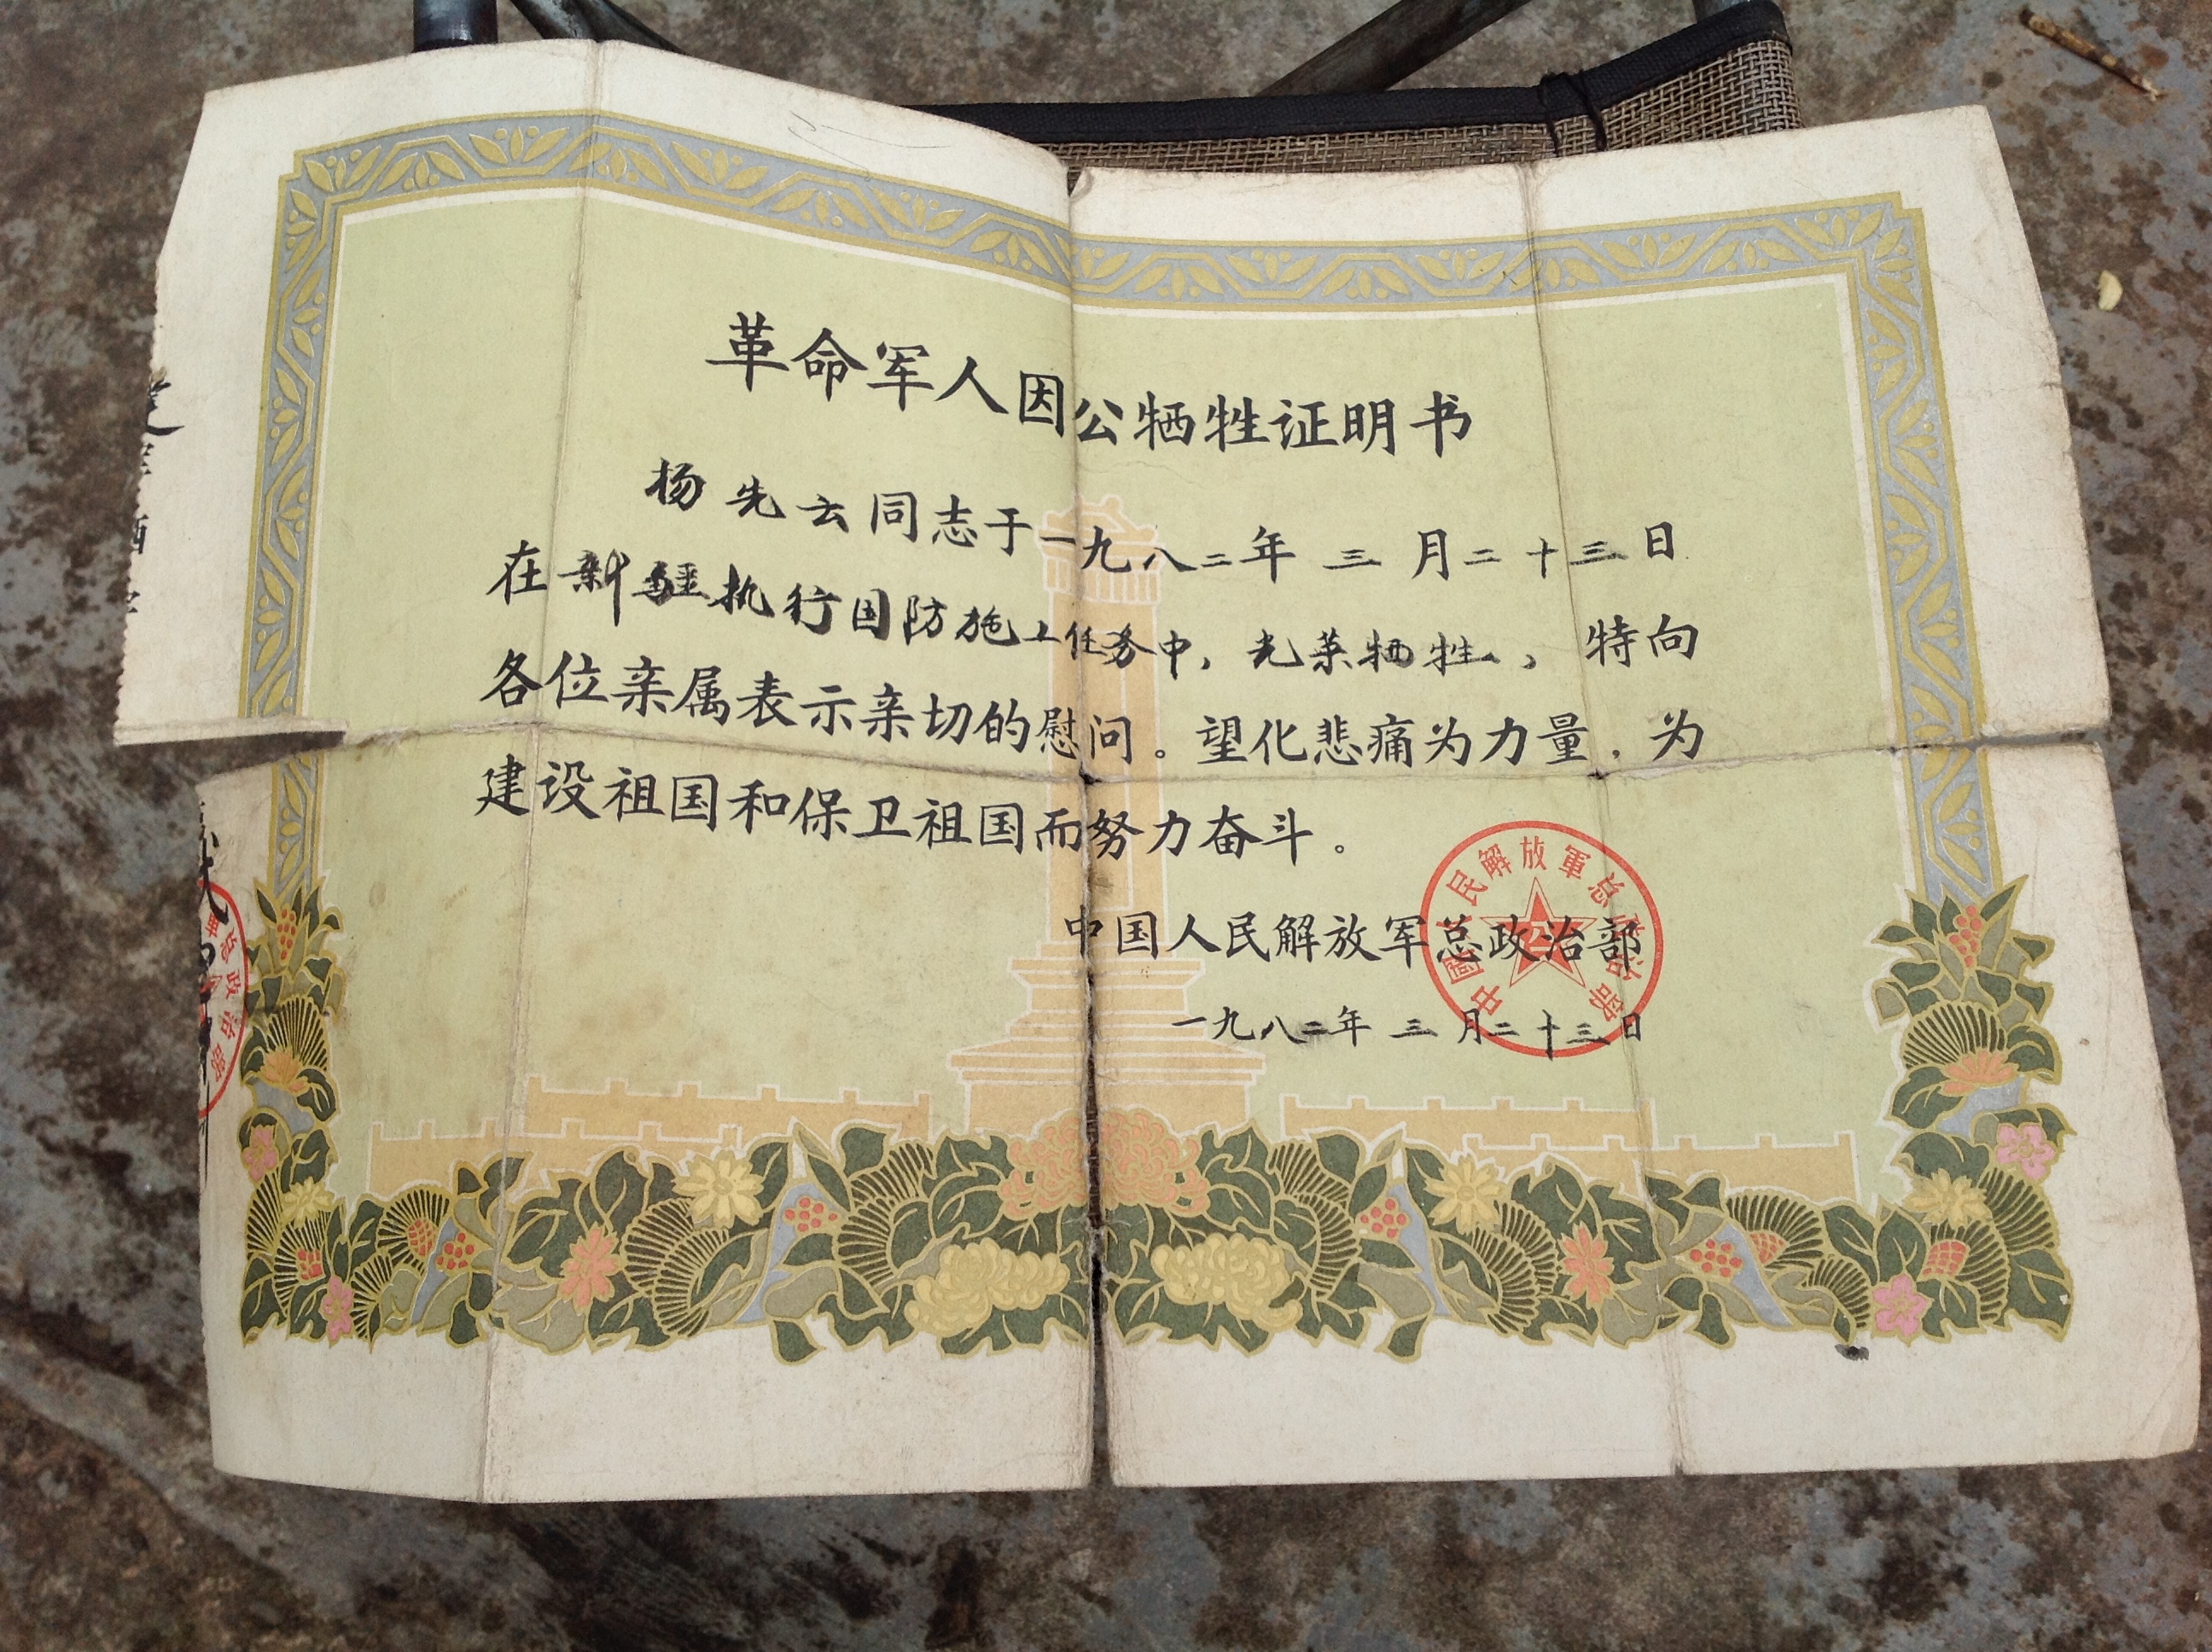 革命军人因公牺牲证明书
杨先云同志于一九八二年三月二十三日
在新疆执行国防施工任务中,光荣牺牲,特向
各位亲属表示亲切的慰问。望化悲痛为力量,为
建设祖国和保卫祖国而努力奋斗。
中国人民解放军总政治部
一九八二年三月二十三日
中國人民解放軍总政治部
总政治部